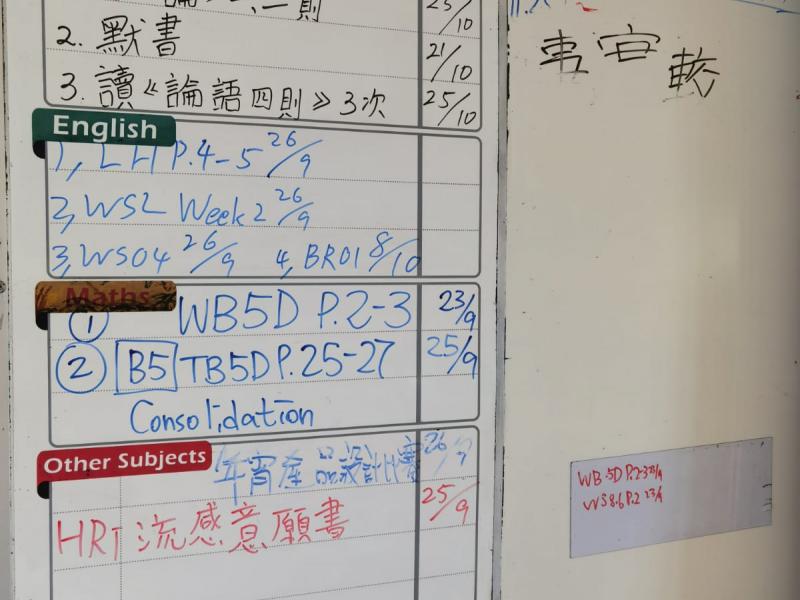 則 25/10
2. 默書 21/10
3. 讀《論語四則》3次 25/10
English
1, LH P.4-5 26/9
2, WS2 Week 2 26/9
3, WS04 26/9 4, BR01 8/10
Maths
① WB5D P.2-3 23/9
② B5 TB5D P.25-27 25/9
Consolidation
Other Subjects
年宵產品設計比賽 26/9
HRT 流感意願書 25/9
WB 5D P.2-3 23/9
WS 8.6 P.2 23/9